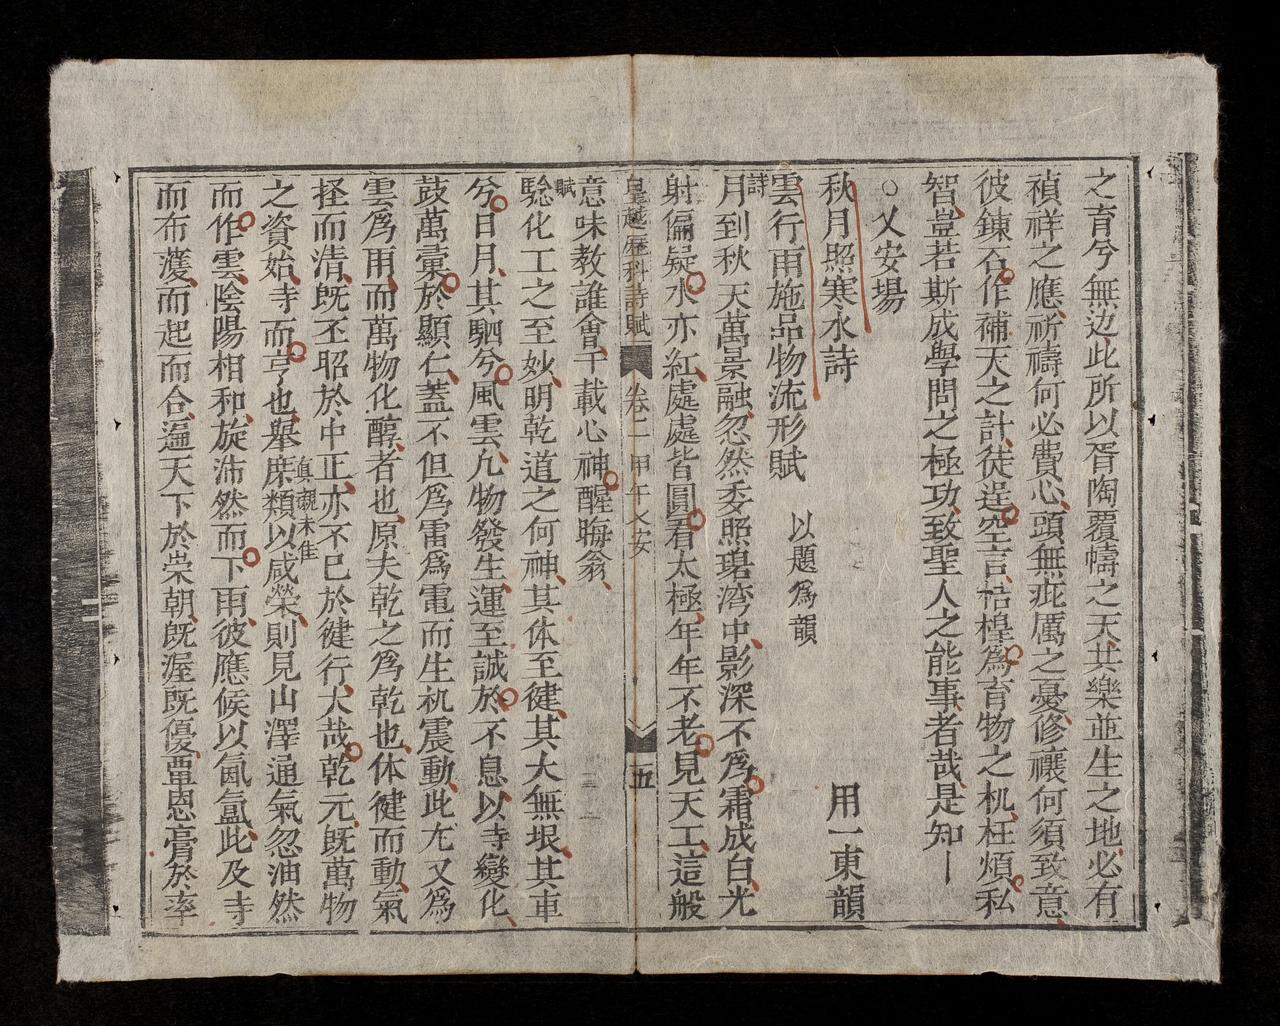 之育兮無边此所以胥陶覆幬之天共樂並生之地必有
禎祥之應祈禱何必費心頭無疵厲之憂修禳何須致意
彼鍊合作補天之計徒逞空言梏楻為育物之机枉煩私
智豈若斯成學問之極功致聖人之能事者哉是知
○乂安場
秋月照寒水詩 用一東韻
雲行雨施品物流形賦 以題爲韻
詩
月到秋天萬景融忽然委照碧湾中影深不爲霜成白光
射偏疑水亦紅處處皆圓看太極年年不老見天工這般
皇越歷科詩賦 卷二 甲午乂安 五
意味教誰會千載心神醒晦翁
賦
騐化工之至妙明乾道之何神其体至健其大無垠其車
兮日月其駟兮風雲九物發生運至誠於不息以寺變化
鼓萬彙於顯仁蓋不但爲雷爲電而生机震動此尢又爲
雲爲雨而萬物化醇者也原夫乾之爲乾也体健而動氣
拯而清旣丕昭於中正亦不已於健行大哉乾元旣萬物
之資始寺而亨也舉庶類以咸榮則見山澤通氣忽油然
眞襯未隹
而作雲陰陽相和旋沛然而下雨彼應候以氤氳此及寺
而布濩而起而合遍天下於崇朝旣渥旣優覃恩膏於率